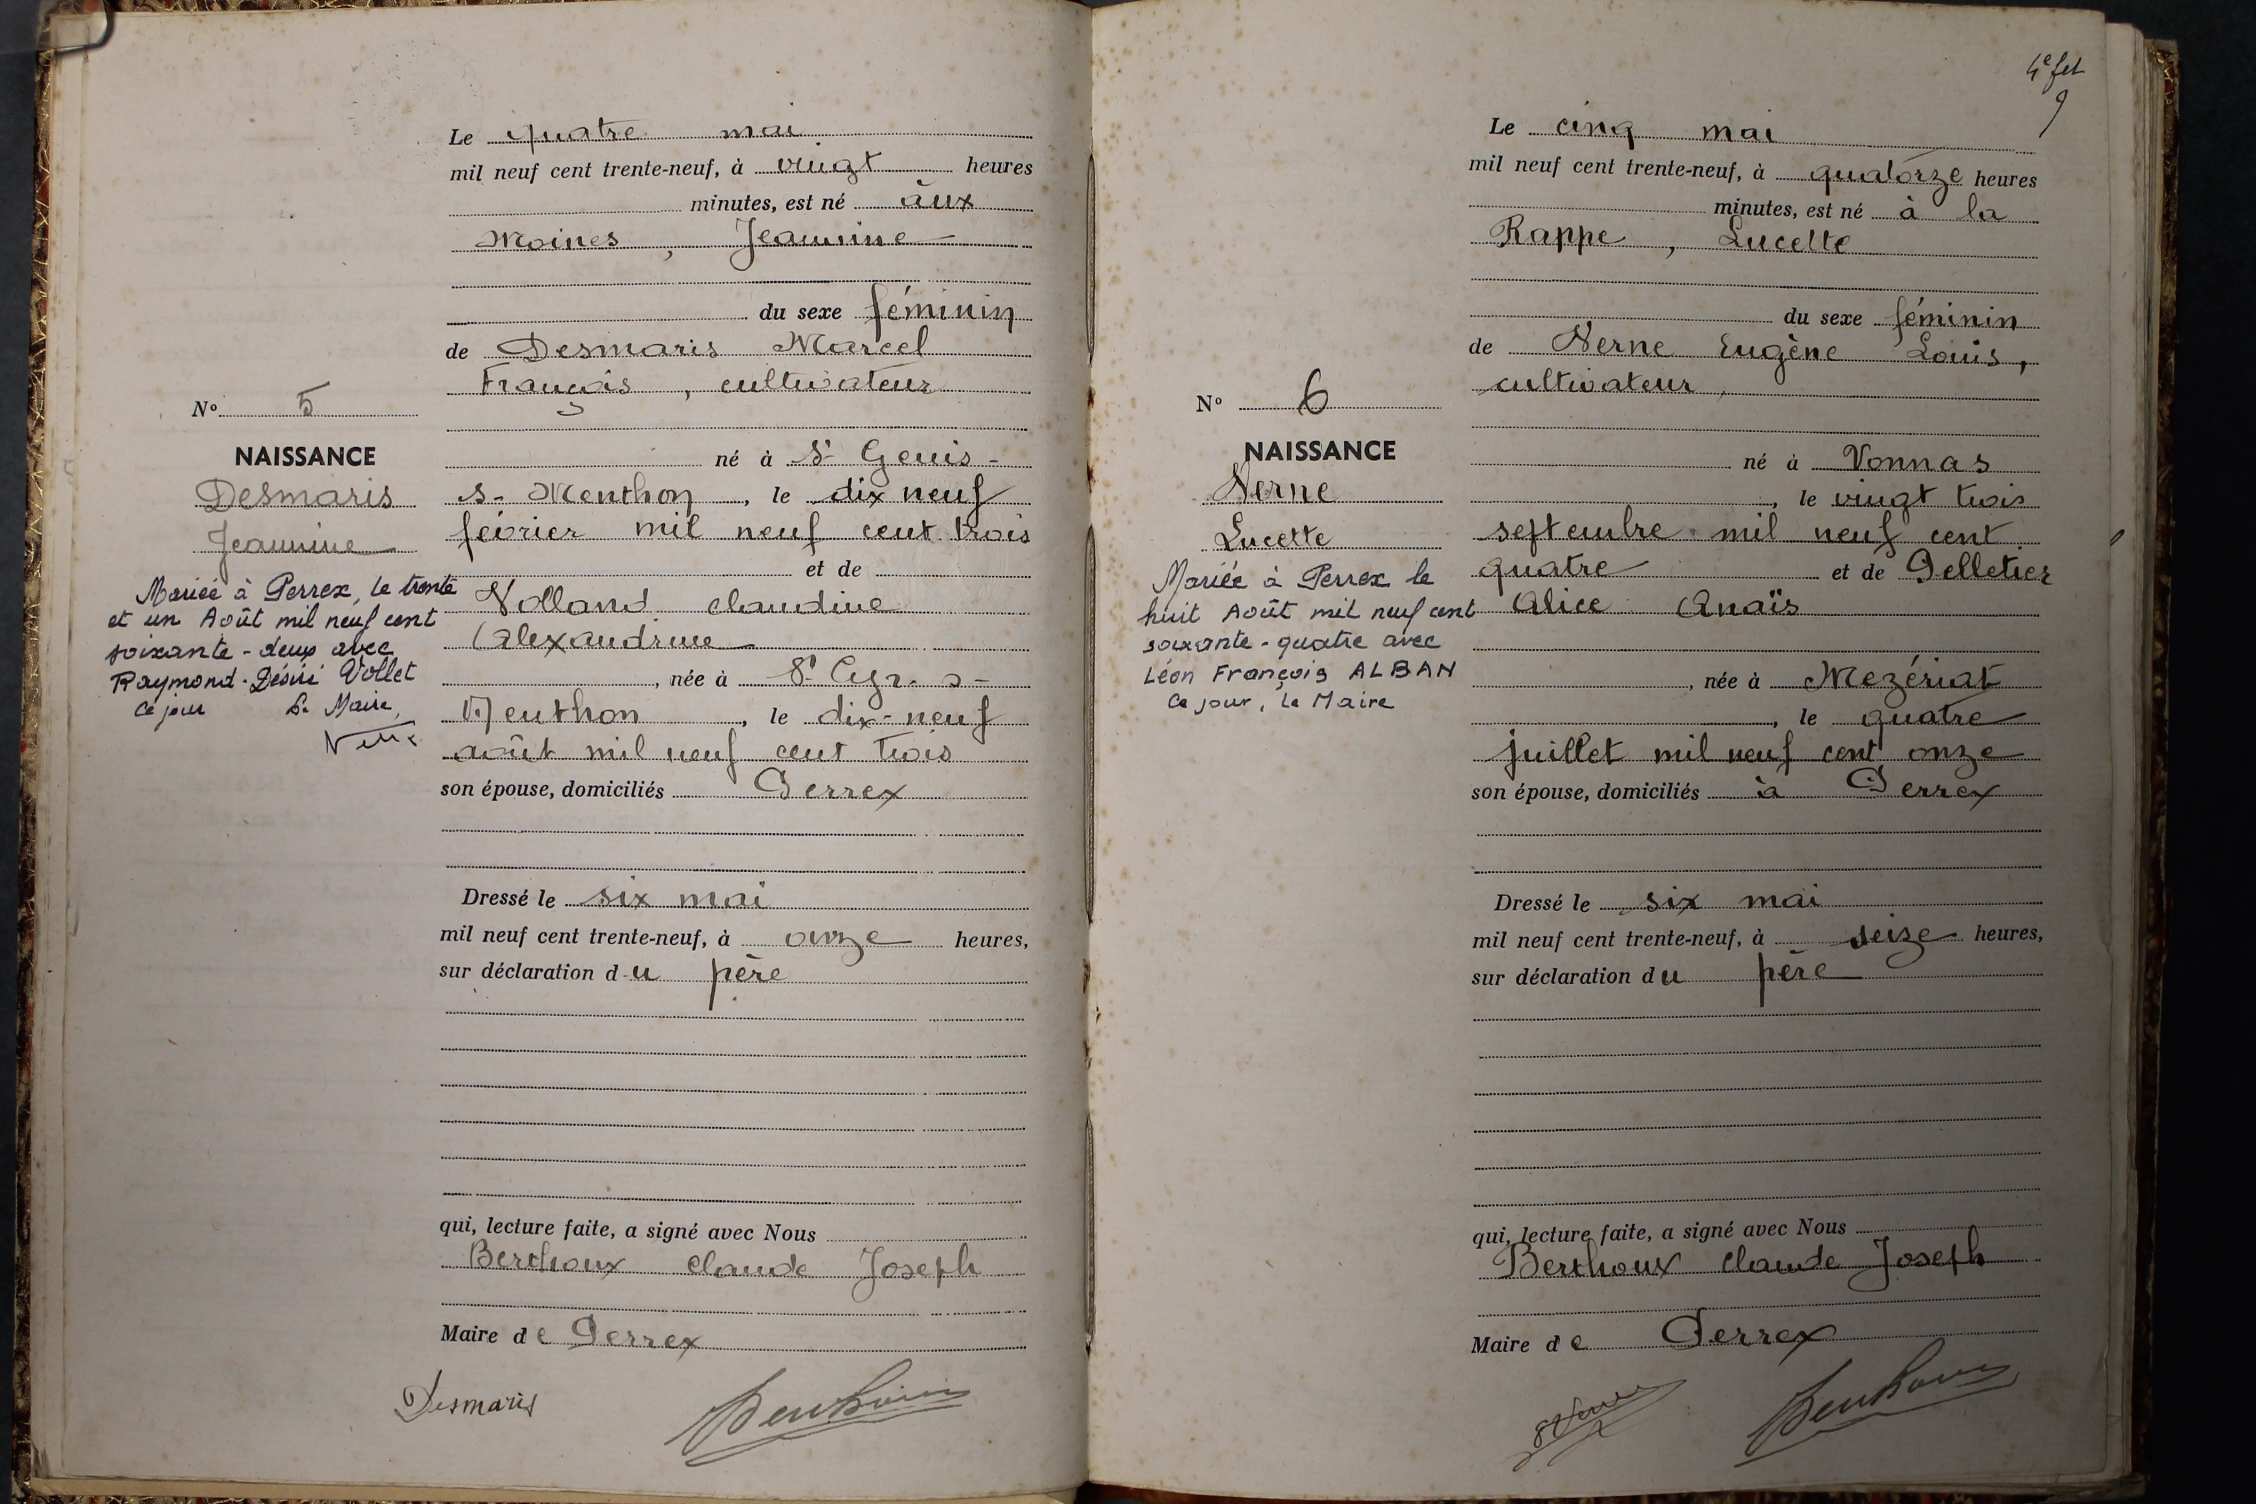 Le quatre mai
mil neuf cent trente-neuf, à vingt heures
minutes, est né aux
Moines, Jeannine
du sexe féminin
de Desmaris Marcel
François, cultivateur
N° 5
NAISSANCE
Desmaris
Jeannine
Mariée à Perrex, le trente
et un Août mil neuf cent
soixante-deux avec
Raymond-Désiré Vollet
Ce jour Le Maire,
né à St Genis-
s- Menthon, le dix neuf
février mil neuf cent trois
et de
Volland claudine
Alexandrine
, née à St Cyr-s-
Menthon, le dix-neuf
août mil neuf cent trois
son épouse, domiciliés Perrex
Dressé le six mai
mil neuf cent trente-neuf, à onze heures,
sur déclaration du père
qui, lecture faite, a signé avec Nous
Berthoux claude Joseph
Maire de Perrex
Desmaris
Berthoux
4e fet
9
Le cinq mai
mil neuf cent trente-neuf, à quatorze heures
minutes, est né à la
Rappe, Lucette
du sexe féminin
de Nerne Eugène Louis,
cultivateur,
N° 6
NAISSANCE
Nerne
Lucette
Mariée à Perrex le
huit Août mil neuf cent
soixante-quatre avec
Léon François ALBAN
Ce jour, le Maire
né à Vonnas
, le vingt trois
septembre mil neuf cent
quatre et de Pelletier
Alice Anaïs
, née à Mezériat
, le quatre
juillet mil neuf cent onze
son épouse, domiciliés à Perrex
Dressé le six mai
mil neuf cent trente-neuf, à seize heures,
sur déclaration du père
qui, lecture faite, a signé avec Nous
Berthoux claude Joseph
Maire de Perrex
Berthoux